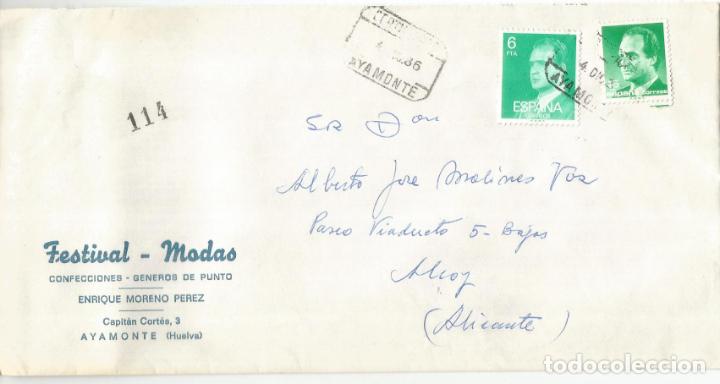 CERTIFICADO
4 DIC 86
AYAMONTE
6
PTA
ESPAÑA
CORREOS
4 DIC
AYAMONTE
España correos
114
Sr Don
Alberto Jose Molines Vor
Paseo Viaducto 5- Bajos
Alcoy
(Alicante)
Festival - Modas
CONFECCIONES - GENEROS DE PUNTO
ENRIQUE MORENO PEREZ
Capitán Cortés, 3
AYAMONTE (Huelva)
todocoleccion.net